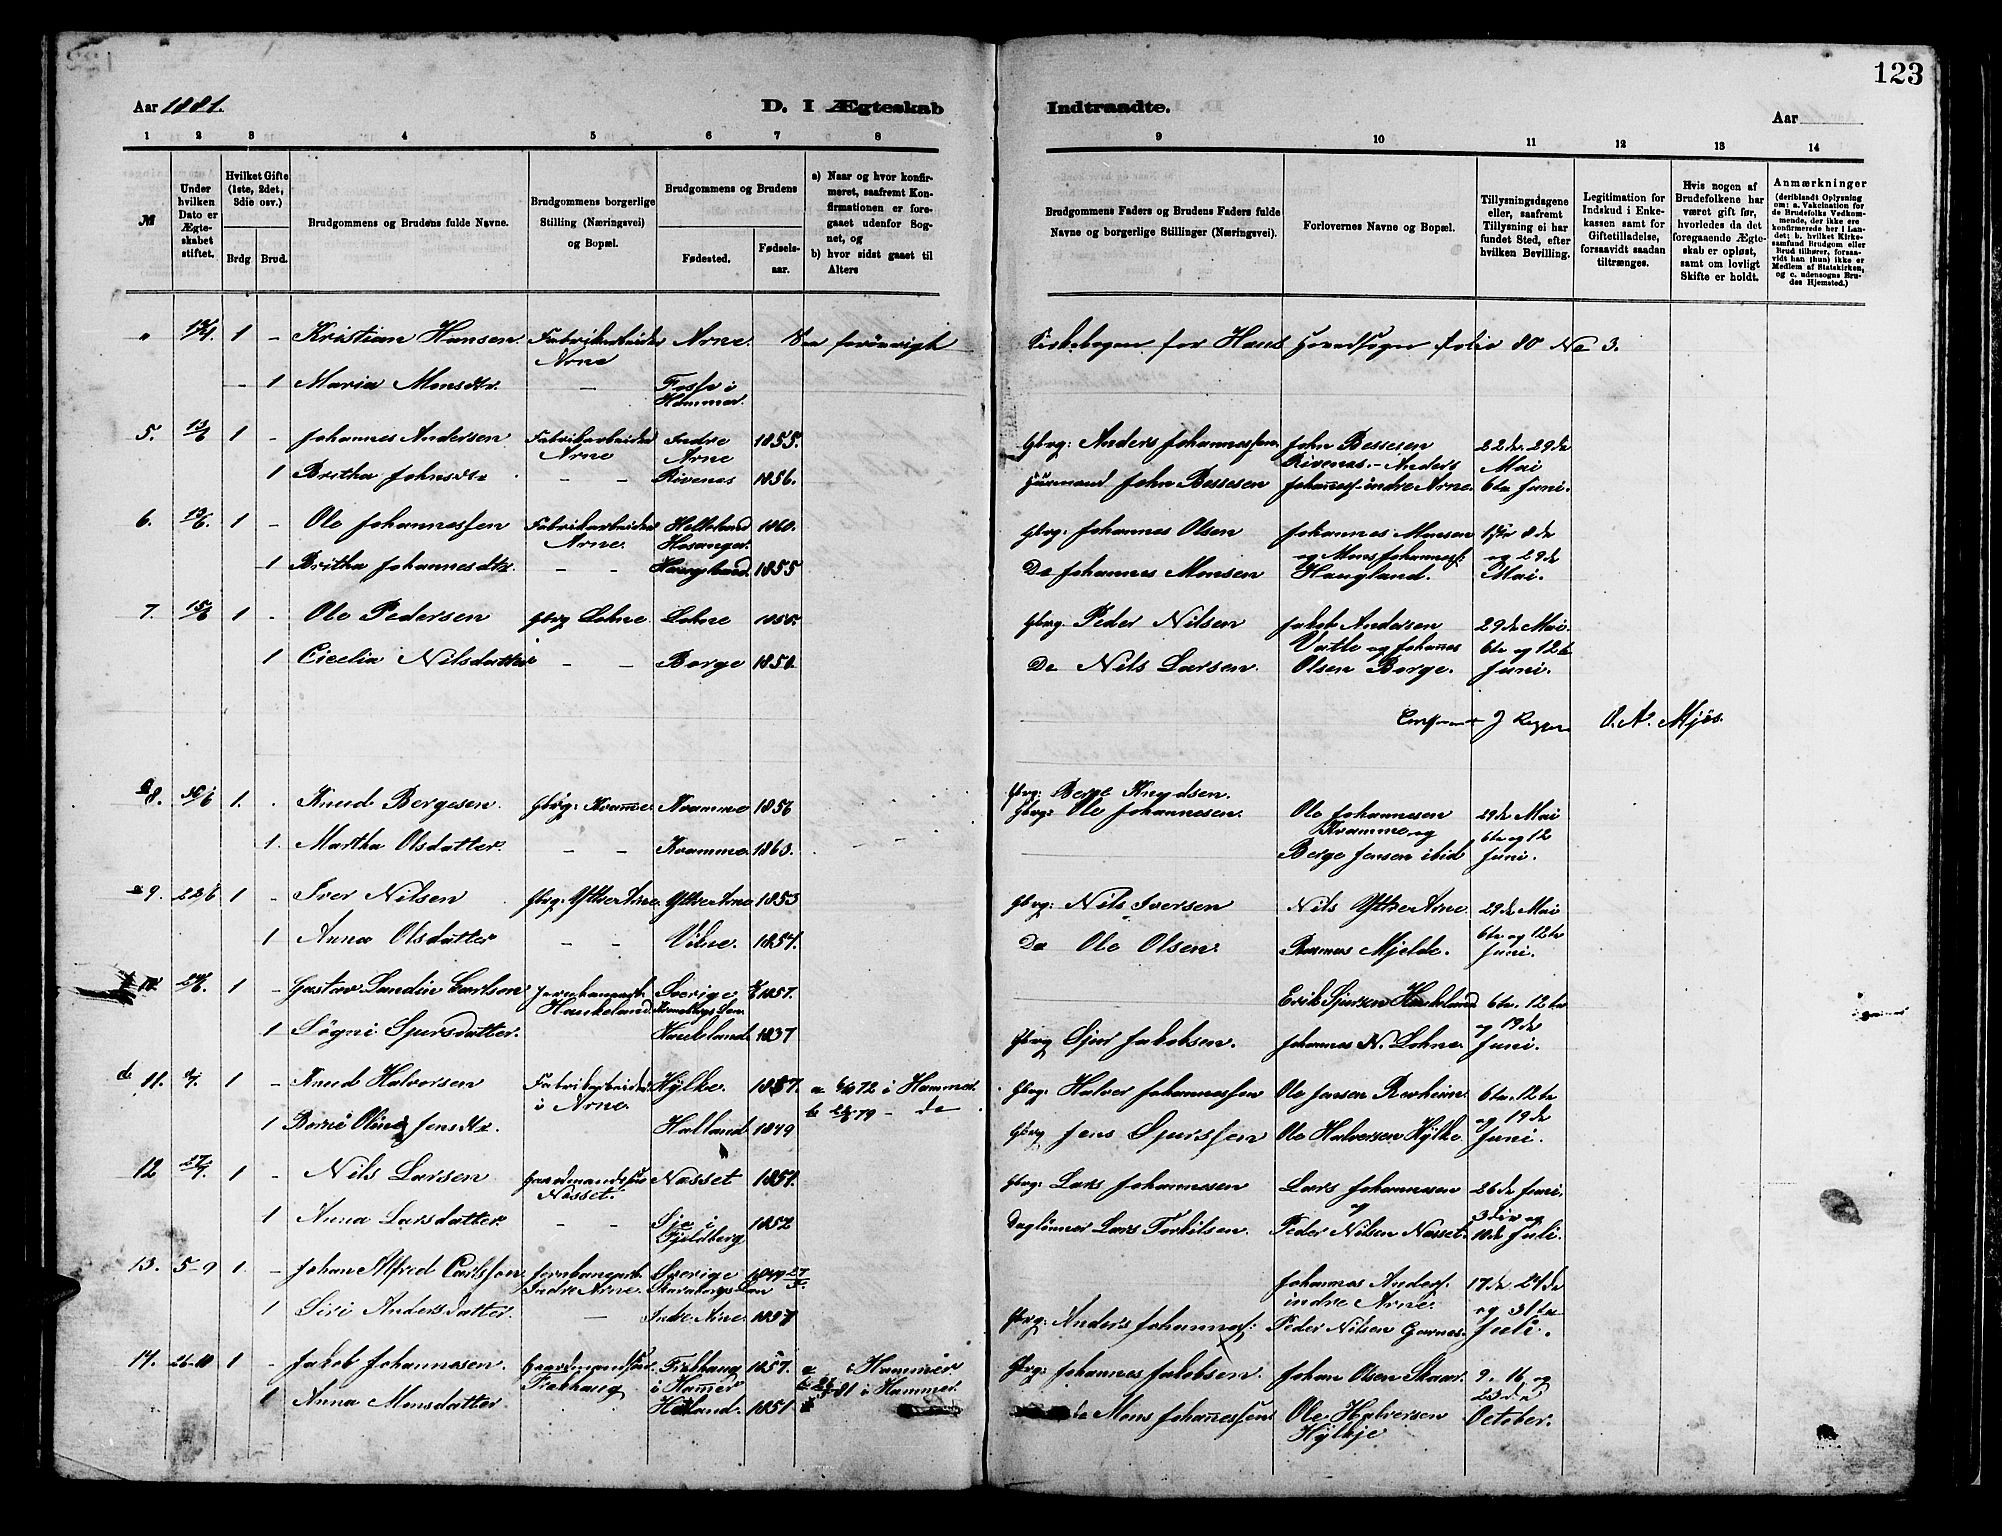 123
Aar 1881.
D. I Ægteskab
Indtraadte.
Aar
1 2 3 4 5 6 7 8 9 10 11 12 13 14
№
Under hvilken Dato er Ægteskabet stiftet.
Hvilket Gifte (1ste, 2det, 3die osv.)
Brdg Brud.
Brudgommens og Brudens fulde Navne.
Brudgommens borgerlige Stilling (Næringsvei) og Bopæl.
Brudgommens og Brudens
Fødested.
Fødsels-aar.
a) Naar og hvor konfirmeret, saafremt Konfirmationen er foregaaet udenfor Sognet, og
b) hvor sidst gaaet til Alters
Brudgommens Faders og Brudens Faders fulde Navne og borgerlige Stillinger (Næringsvei).
Forlovernes Navne og Bopæl.
Tillysningsdagene eller, saafremt Tillysning ei har fundet Sted, efter hvilken Bevilling.
Legitimation for Indskud i Enkekassen samt for Giftetilladelse, forsaavidt saadan tiltrænges.
Hvis nogen af Brudefolkene har været gift før, hvorledes da det foregaaende Ægteskab er opløst, samt om lovligt Skifte er holdt.
Anmærkninger (deriblandt Oplysning om: a. Vakcination for de Brudefolks Vedkommende, der ikke ere konfirmerede her i Landet; b. hvilket Kirkesamfund Brudgom eller Brud tilhører, forsaavidt han (hun) ikke er Medlem af Statskirken, og c. udensogns Brudes Hjemsted.)
1 - Kristian Hansen Fabrikarbeider Arne Arne. Kirkebogen for Haus Hovedsogn folio 80 No 3.
- 1 Maria Monsdtr. - Fosse i Hammer.
5. 13/6 1 - Johannes Andersen Fabrikarbeider Arne Indre Arne 1855. Gbrg: Anders Johannessen John Bessesen Rivenes. - Anders 22de. 29de Mai
1 Britha Johnsdtr - - Rivenes 1856. Huusmand John Bessesen Johanness. indre Arne. 6te Juni.
6. 13/6. 1 - Ole Johannessen Fabrikarbeider Arne. Helleland Hosanger. 1860. Gbrg: Johannes Olsen Johannes Monsen 8de
1 Britha Johannesdtr. - - Haugland. 1855 Do Johannes Monsen og Mons Johanness: Haugland. og 29de Mai.
7. 15/6 1 - Ole Pedersen Gbrg Lohne. Lohne Gbrg. Peder Nilsen Jakob Andersen 29de Mai.
1 Cicelia Nilsdatter - - Borge Do Nils Larsen. Vatle og Johanes Olsen Borge. 6te og 12te Juni.
O. A. Mjös.
8. 1. - Knud Bergesen Gbrg: Kvamme. Kvamme 1856 Gbrg: Berge Knudsen. Gbrg: Ole Johannesen. Ole Johannesen 29de Mai
1. Martha Olsdatter. - - Kvamme. 1863. Kvamme og Berge Jensen ibid 6te og 12 Juni.
9. 22/6 1 - Iver Nilsen Gbrg: Yttre Arne. Yttre Arne 1853 Gbrg: Nils Iversen Nils Yttre Arne. 29de Mai
1 Anna Olsdatter - - 1854. Do Ole Olsen. Rasmus Mjelde. 6te og 12te Juni.
1 - Gustav Sandin Carlson Jernbanearb. Haukeland. Sverige Kronobergs Len. Erik Sjursen Haukeland 6te. 12te
1 Søgni Sjursdatter. Haukeland. Gbrg Sjur Jakobsen. Johannes N. Lohne. og 19de Juni.
11. 1 - Knud Halvorsen Fabrikarbeider i Arne. Hylke. a 72 i Hammer b 79 - do Gbrg: Halvor Johannessen Ole Jensen 6te. 12te
1 Jensdtr. Halland. 1849 Gbrg Jens Sjurssen Ole Halversen Hylke og 19de Juni.
12 1 - Nils Larsen Gaardmandssøn Nasset. Nasset Gbrg: Lars Johannesen Lars Johannesen 26de Juni.
1 Anna Larsdatter - - i Fjeldberg 1852 Daglønner Lars Torkilsen. og Peder Nilsen Nasset. 3die og 10de Juli.
13. 5-9 1. - Johan Alfred Carlsson Jernbanearb. Indre Arne. Sverige Skaraborgs Len Johannes Anders: indre Arne. 17de 24de
1 Siri Andersdatter. - Indre Arne. Gbrg: Anders Johannes: Peder Nilsen Garnes. og 31te Juli.
14. 26-10 1 - Jakob Johannesen. Gaardmandssøn i Hamer 1857. a Hammer b 81 i Hammer. Gbrg: Johannes Jakobsen. Johan Olsen Skaar. 9. 16 og
1 Anna Monsdatter. 1851. do Mons Johanessen Ole Halversen Hylkje 23de October.